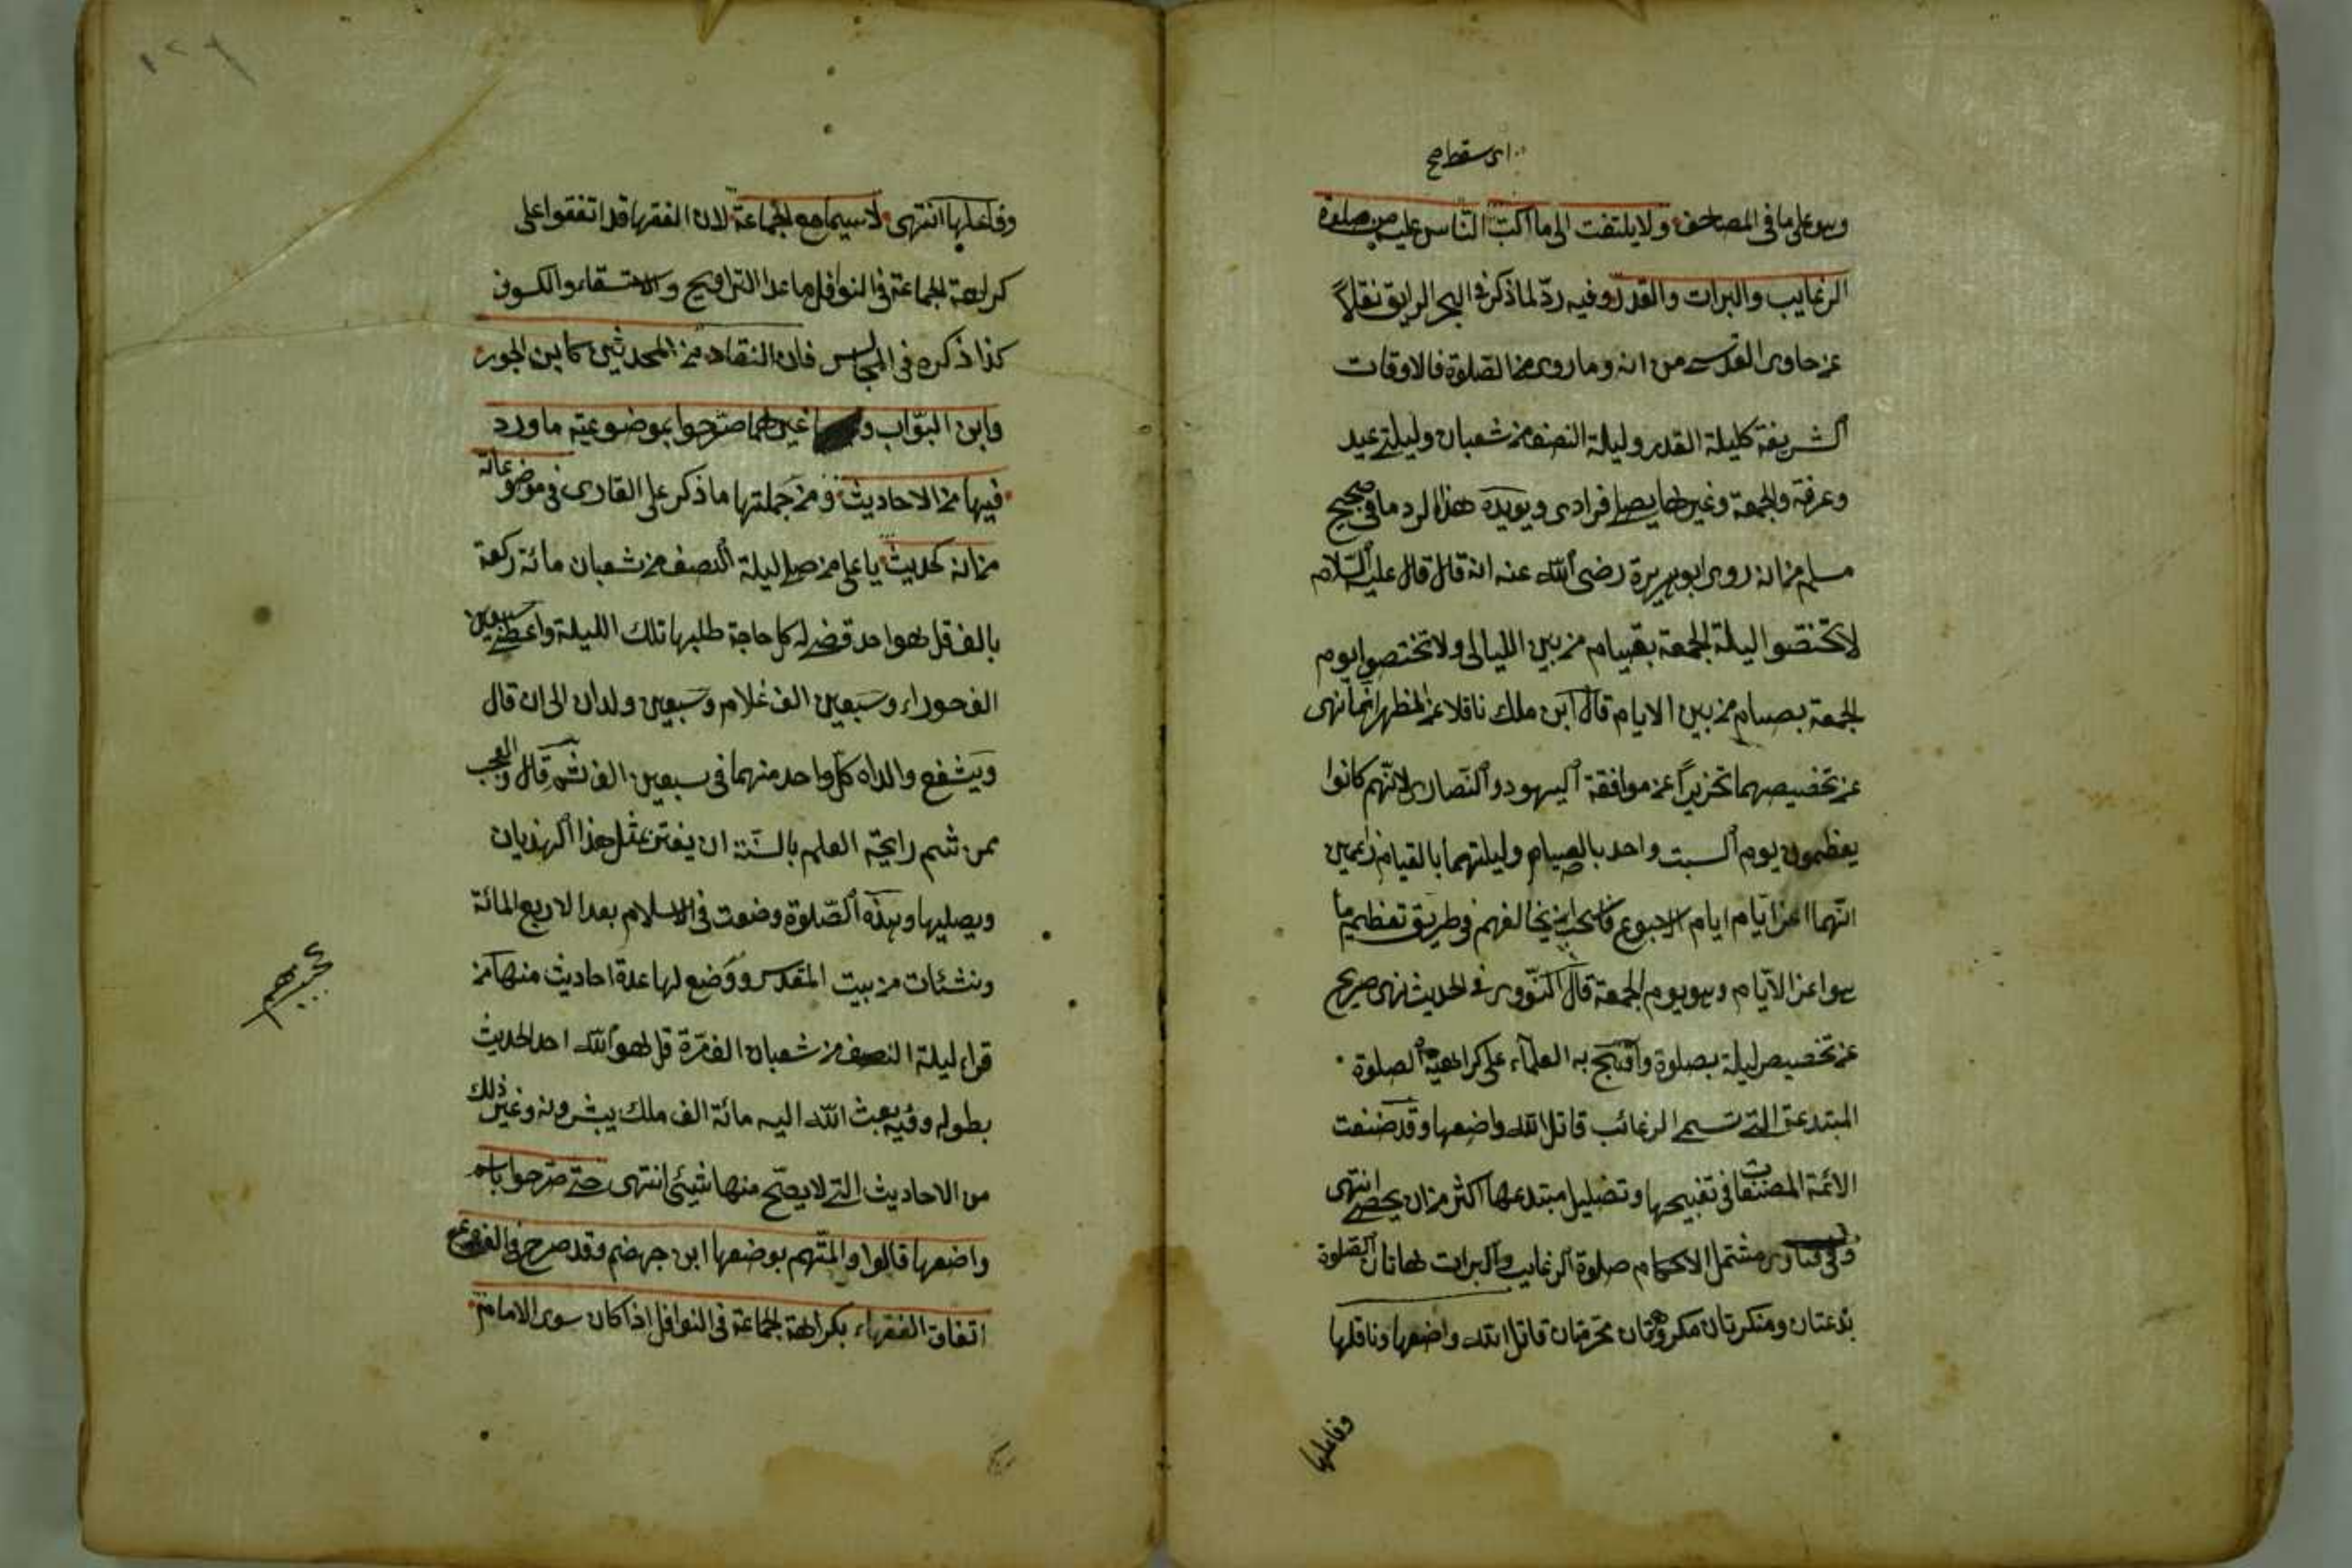 اى سقط صح
وهو على ما فى المصاحف ولا يلتفت الى ما اكبّ النّاس عليه من صلوة
الرغايب والبرات والقدر وفيه ردّ لما ذكر فى البحر الرايق نقلاً
عن حاوى القدسى من انه وما روى من الصّلوة فى الاوقات
الشريفة كليلة القدر وليلة النصف من شعبان وليلتى عيد
وعرفة والجمعة وغيرها يصلى فرادى ويويده هذا الرد ما فى صحيح
مسلم من انه روى ابو هريرة رضى الله عنه انه قال قال عليه السّلام
لا تختصّوا ليلة الجمعة بقيام من بين الليالى ولا تختصوا يوم
الجمعة بصيام من بين الايام قال ابن ملك ناقلا عن المظهر انما نهى
عن تخصيصهما تحزيراً عن موافقة اليهود والنّصارى لانّهم كانوا
يعظمون يوم السبت واحد بالصيام وليلتهما بالقيام زاعمين
انّهما اعز ايّام ايام الاسبوع فاستحب ان يخالفهم فى طريق تعظيم ما
هو اعز الايّام وهو يوم الجمعة قال النّووى فى الحديث نهى صريح
عن تخصيص ليلة بصلوة واحتج به العلماء على كراهية الصلوة
المبتدعة التى تسمى الرغائب قاتل الله واضعها وقد صنفت
الائمة المصنفات فى تقبيحها وتضليل مبتدعها اكثر من ان يحصى انتهى
وفى فتاوى مشتمل الاحكام صلوة الرغايب والبرات هاتان الصّلوة
بدعتان ومنكرتان مكروهتان محرمتان قاتل الله واضعها وناقلها
وفاعلها
وفاعلها انتهى لا سيما مع الجماعة لان الفقهاء قد اتفقوا على
كراهة الجماعة فى النوافل ما عدا التراويح والاستسقاء والكسوف
كذا ذكره فى المجالس فان النقاد من المحدثين كابن الجوزى
وابن البوّاب وغيرهما صرّحوا بموضوعية ما ورد
فيها من الاحاديث ومن جملتها ما ذكر على القارى فى موضوعاته
من انه كحديث يا على من صلى ليلة النصف من شعبان مائة ركعة
بالف قل هو احد قضى له كل حاجة طلبها تلك الليلة واعطى سبعين
الف حوراء وسبعين الف غلام وسبعين ولدان الى ان قال
ويشفع والداه كلّ واحد منهما فى سبعين الف ثم قال والعجب
ممن شم رايحة العلم بالسّنة ان يغتر بمثل هذا الهذيان
ويصليها وهذه الصّلوة وضعت فى الاسلام بعد الاربع المائة
ونشئات من بيت المقدس ووضع لها عدة احاديث منها من
قراء ليلة النصف من شعبان الف مرّة قل هو الله احد الحديث
بطوله وفيه بعث الله اليه مائة الف ملك يبشرونه وغير ذلك
من الاحاديث التى لا يصحّ منها شيئ انتهى حتى صرحوا باسم
واضعها قالوا والمتّهم بوضعها ابن جهضم وقد صرح فى الفروع
اتفاق الفقهاء بكراهة الجماعة فى النوافل اذا كان سوى الامام